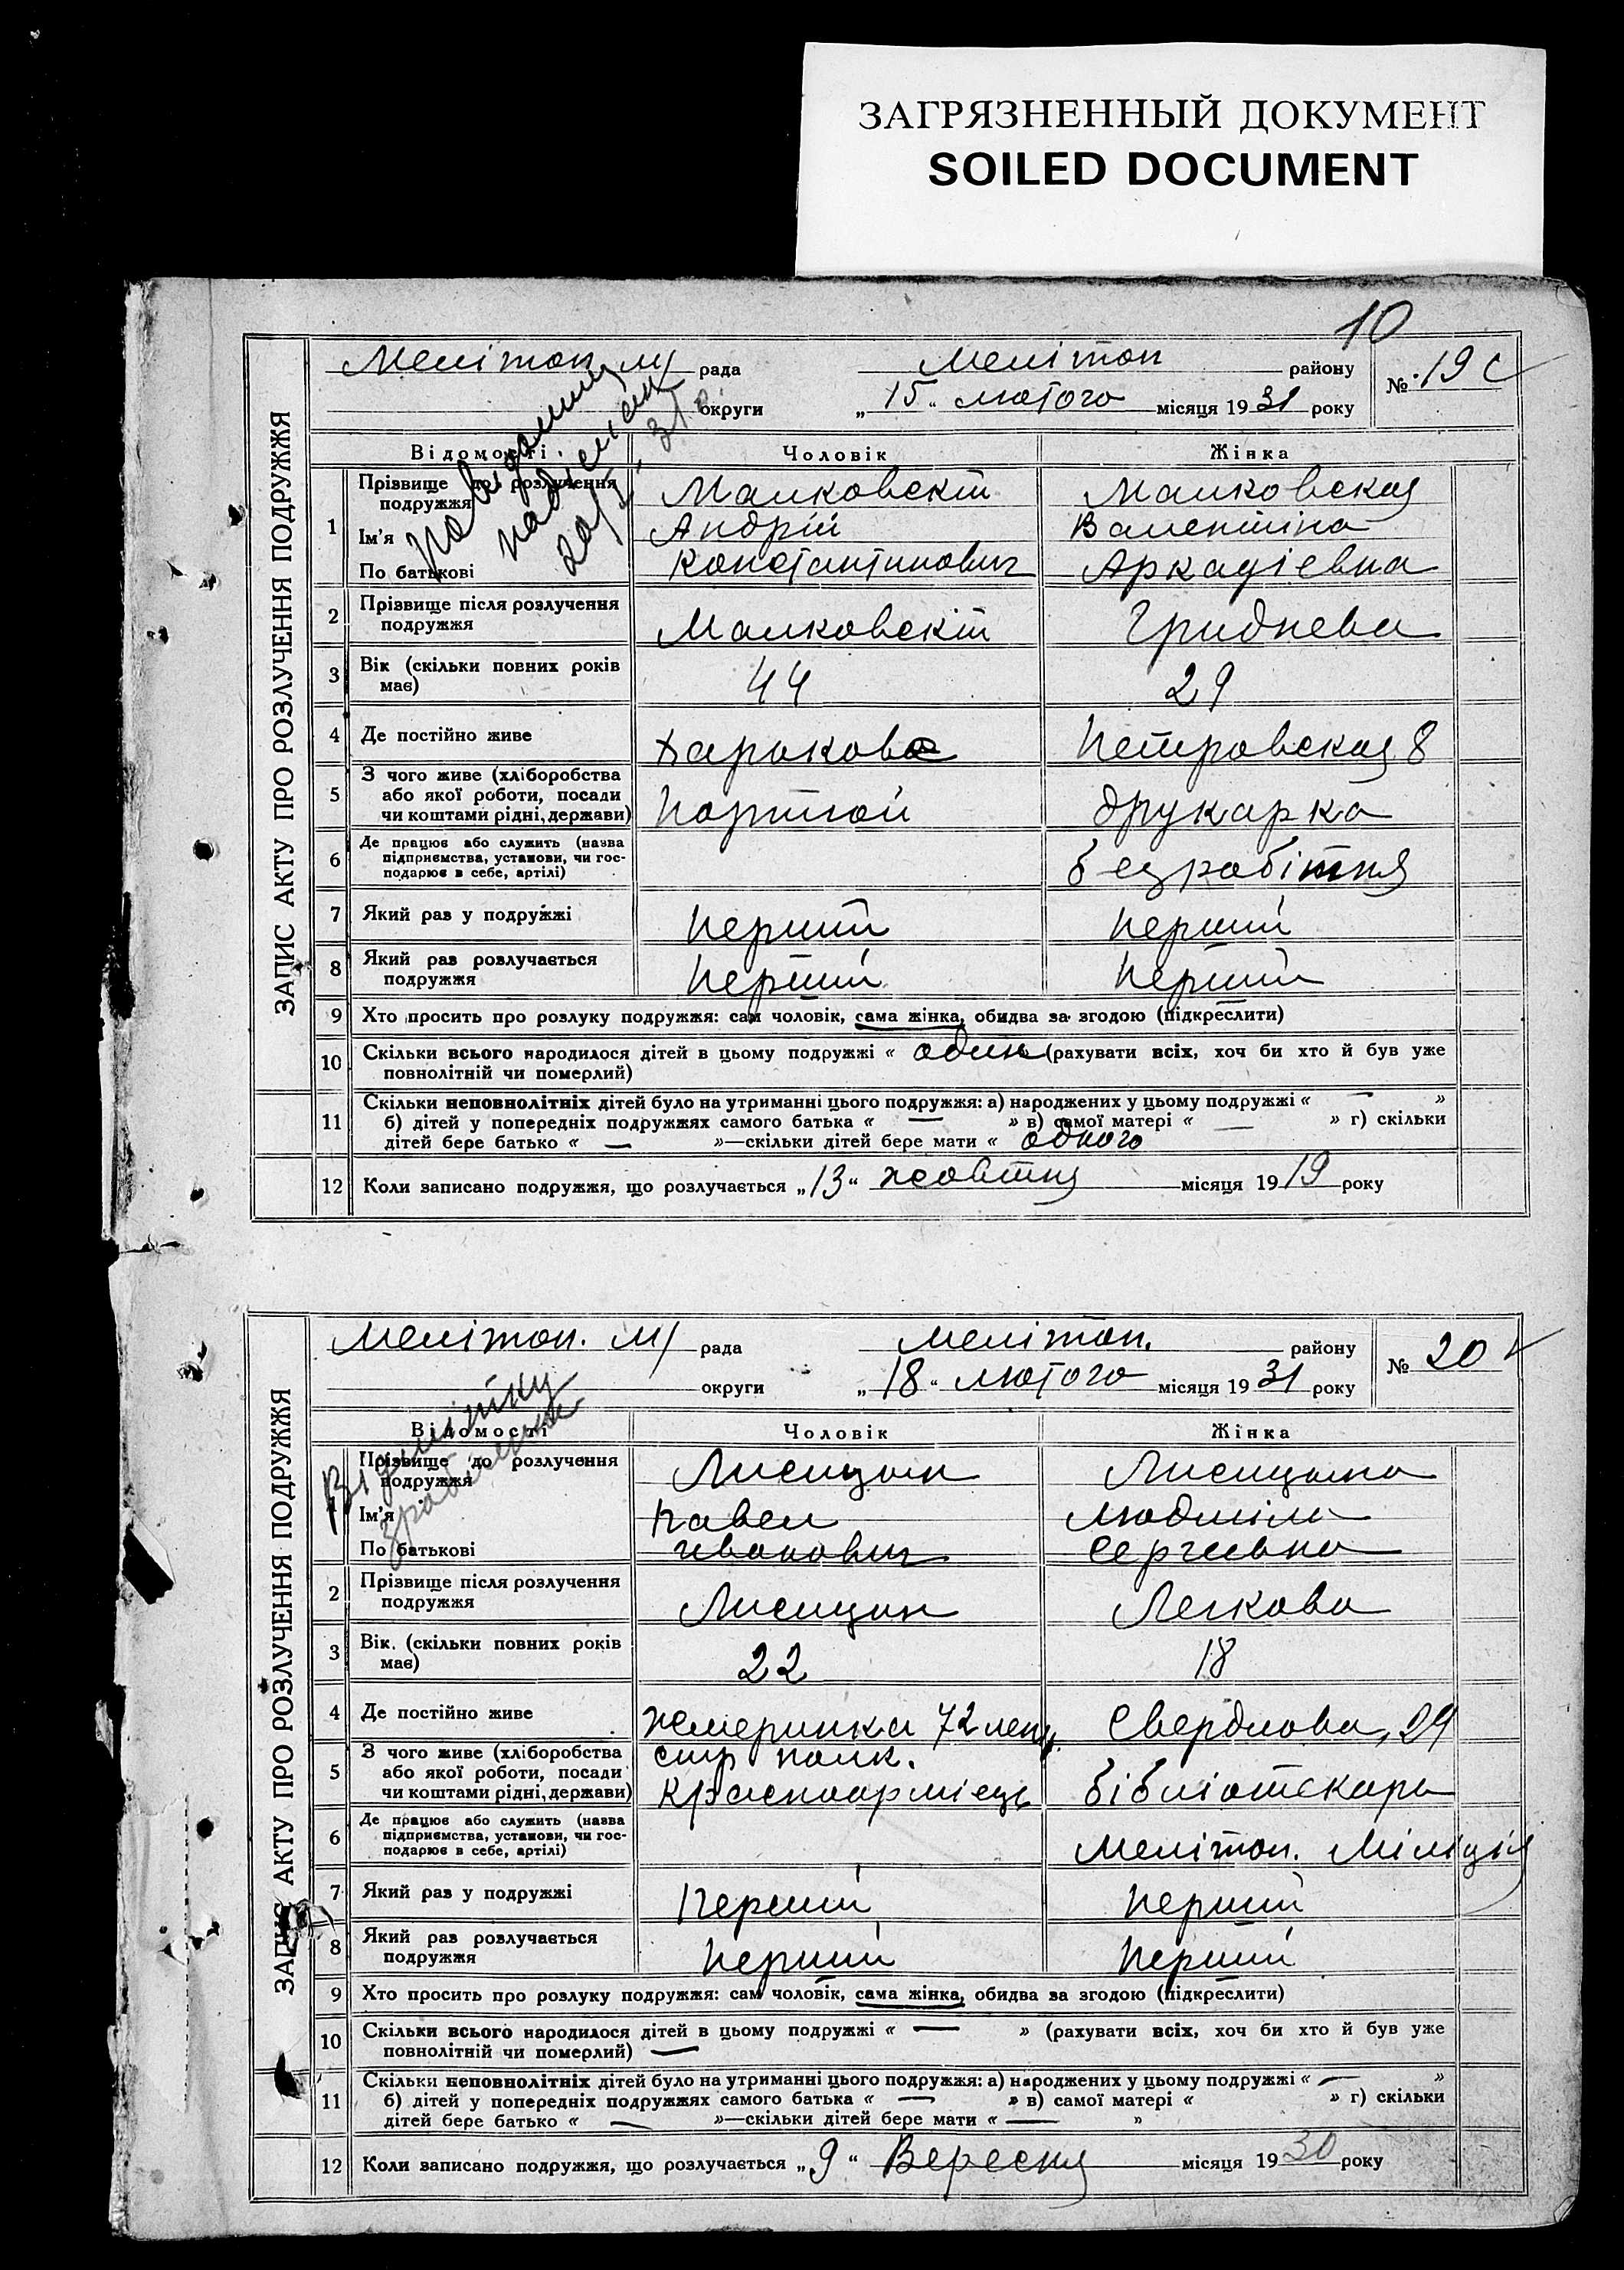 ЗАГРЯЗНЕННЫЙ ДОКУМЕНТ
SOILED DOCUMENT
10
ЗАПИС АКТУ ПРО РОЗЛУЧЕННЯ ПОДРУЖЖЯ
Мелітоп. м/ рада Мелітоп району № 19
округи „15“ лютого місяця 1931 року
Повідомлення надіслан
Відомості Чоловік Жінка
1 Прізвище до розлучення подружжя Малковскій Малковская
Ім'я Андрій Валентіна
По батькові Константинович Аркадіевна
2 Прізвище після розлучення
подружжя Малковскій Гриднева
3 Вік (скільки повних років
має) 44 29
4 Де постійно живе Харьков Петровская 8
5 З чого живе (хліборобства
або якої роботи, посади
чи коштами рідні, держави) Портной друкарка
6 Де працює або служить (назва
підприємства, установи, чи гос-
подарює в себе, артілі) безробітня
7 Який раз у подружжі перший перший
8 Який раз розлучається
подружжя перший перший
9 Хто просить про розлуку подружжя: сам чоловік, сама жінка, обидва за згодою (підкреслити)
10 Скільки всього народилося дітей в цьому подружжі « один (рахувати всіх, хоч би хто й був уже
повнолітній чи померлий)
11 Скільки неповнолітніх дітей було на утриманні цього подружжя: а) народжених у цьому подружжі « — »
б) дітей у попередніх подружжях самого батька « — » в) самої матері « — » г) скільки
дітей бере батько « — »—скільки дітей бере мати « одного
12 Коли записано подружжя, що розлучається „13“ жовтня місяця 1919 року
ЗАПИС АКТУ ПРО РОЗЛУЧЕННЯ ПОДРУЖЖЯ
Мелітоп. м/ рада Мелітоп. району № 20
округи „18“ лютого місяця 1931 року
Відмітку
Відомості Чоловік Жінка
1 Прізвище до розлучення
подружжя Лисицын Лисицына
Ім'я Павел Людміла
По батькові Иванович Сергеевна
2 Прізвище після розлучення
подружжя Лисицын Легкова
3 Вік. (скільки повних років
має) 22 18
4 Де постійно живе Жмеринка 72 Свердлова, 29
стр полк.
5 З чого живе (хліборобства
або якої роботи, посади
чи коштами рідні, держави) Красноармієць бібліотекарь
6 Де працює або служить (назва
підприємства, установи, чи гос-
подарює в себе, артілі) Мелітоп. Міліція
7 Який раз у подружжі Перший перший
8 Який раз розлучається
подружжя перший перший
9 Хто просить про розлуку подружжя: сам чоловік, сама жінка, обидва за згодою (підкреслити)
10 Скільки всього народилося дітей в цьому подружжі « — » (рахувати всіх, хоч би хто й був уже
повнолітній чи померлий) —
11 Скільки неповнолітніх дітей було на утриманні цього подружжя: а) народжених у цьому подружжі « — »
б) дітей у попередніх подружжях самого батька « — » в) самої матері « » г) скільки
дітей бере батько « — »—скільки дітей бере мати « — »
12 Коли записано подружжя, що розлучається „9“ Вересня місяця 1930 року